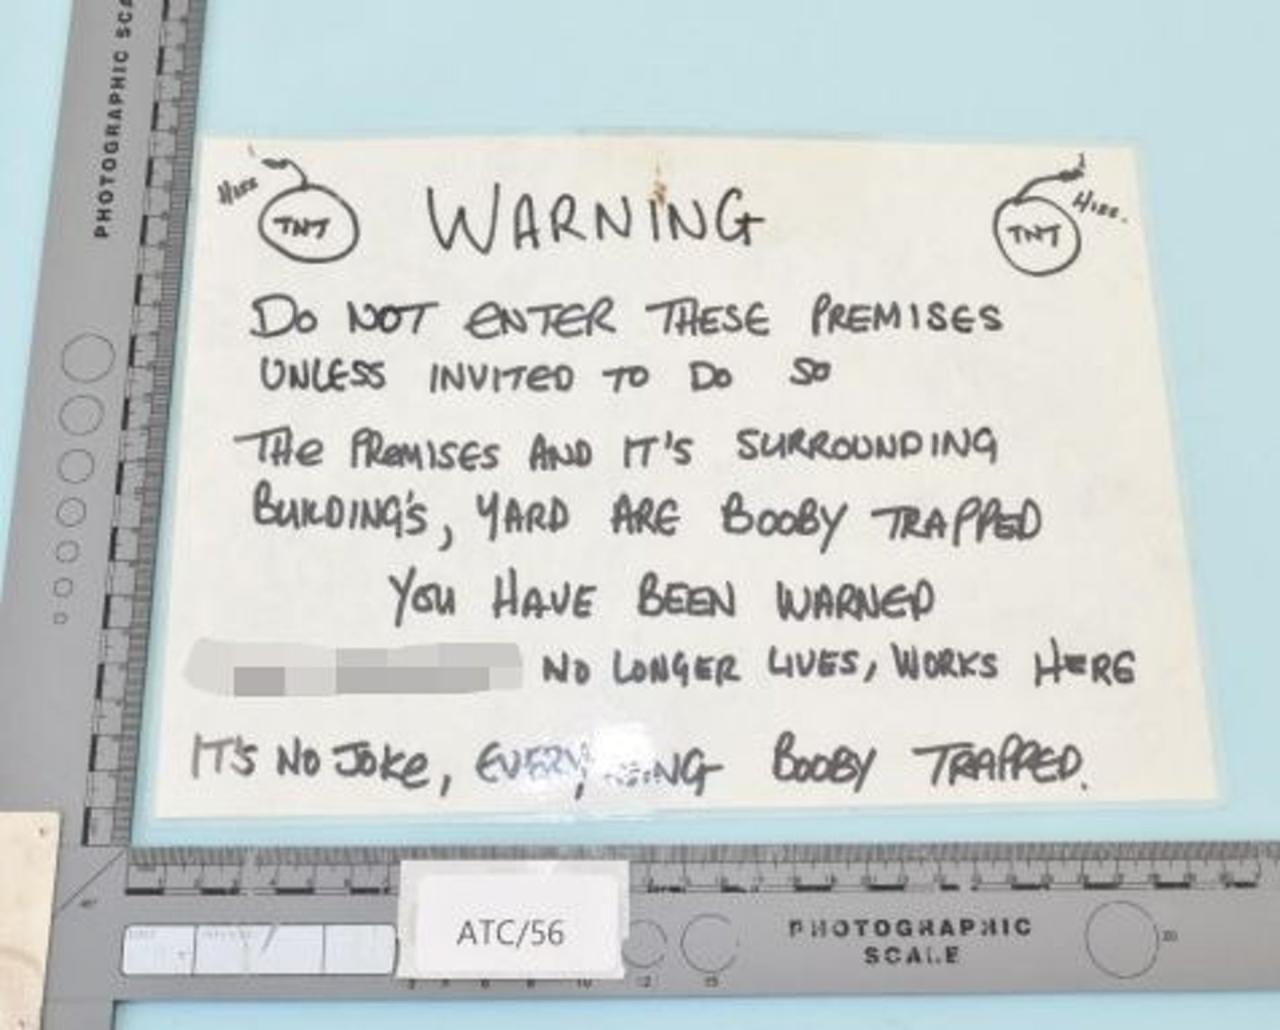 PHOTOGRAPHIC SCA
HISS TNT WARNING TNT HISS.
DO NOT ENTER THESE PREMISES
UNLESS INVITED TO DO SO
THE PREMISES AND IT'S SURROUNDING
BUILDING'S, YARD ARE BOOBY TRAPPED
YOU HAVE BEEN WARNED
NO LONGER LIVES, WORKS HERE
IT'S NO JOKE, EVERYTHING BOOBY TRAPPED.
ATC/56
PHOTOGRAPHIC
SCALE